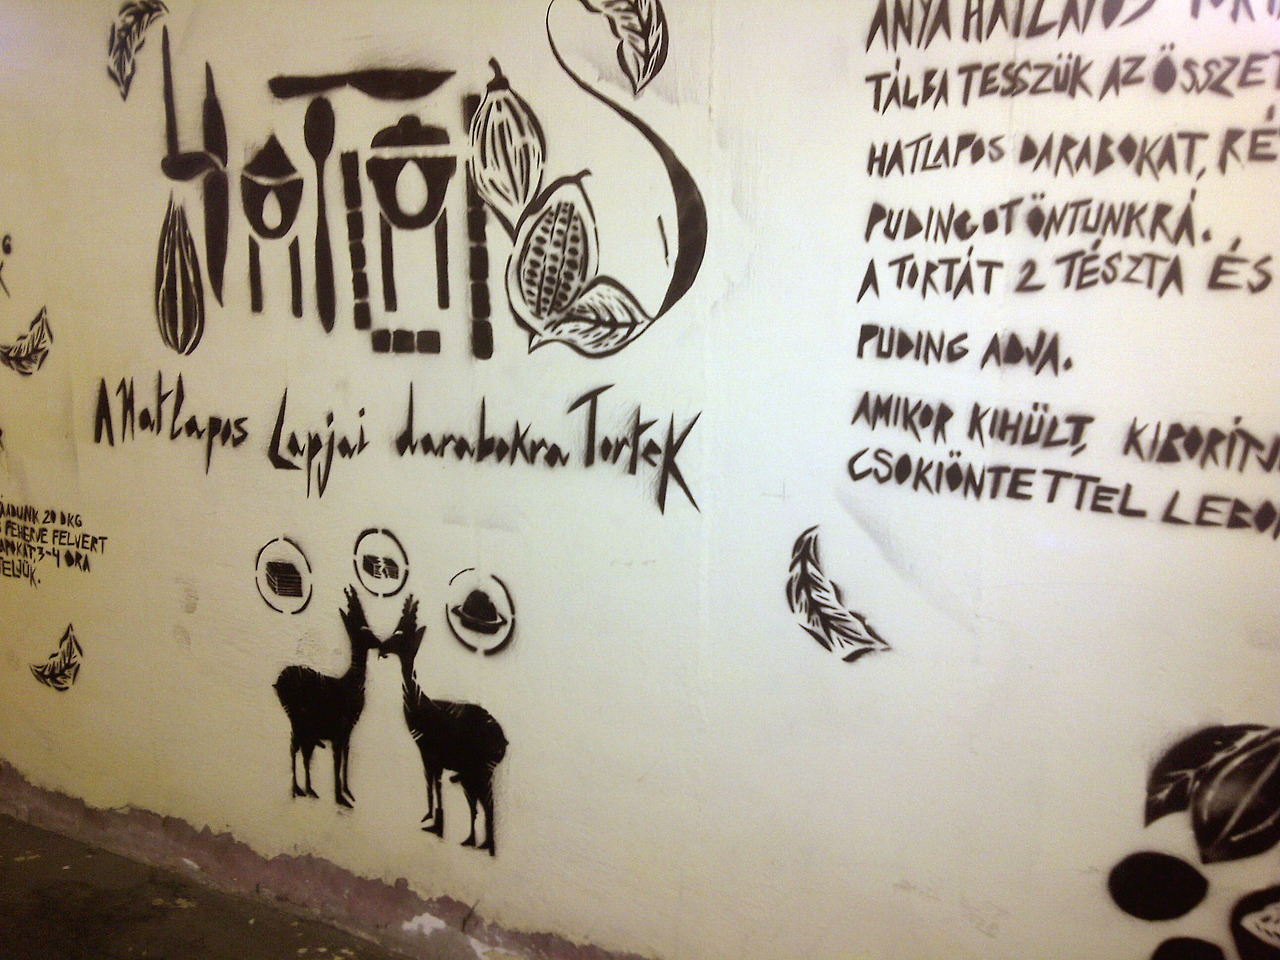 A Hatlapos Lapjai darabokra Törtek
ÁADUNK 20 DKG
FEHÉRJE FELVERT
LAPOKAT, 3-4 ÓRA
ANYA HATLAPOS
TÁLBA TESSZÜK AZ ÖSSZET
HATLAPOS DARABOKAT, RÉ
PUDINGOT ÖNTUNK RÁ.
A TORTÁT 2 TÉSZTA ÉS
PUDING ADJA.
AMIKOR KIHÜLT, KIBORÍTJ
CSOKIÖNTETTEL LEBO